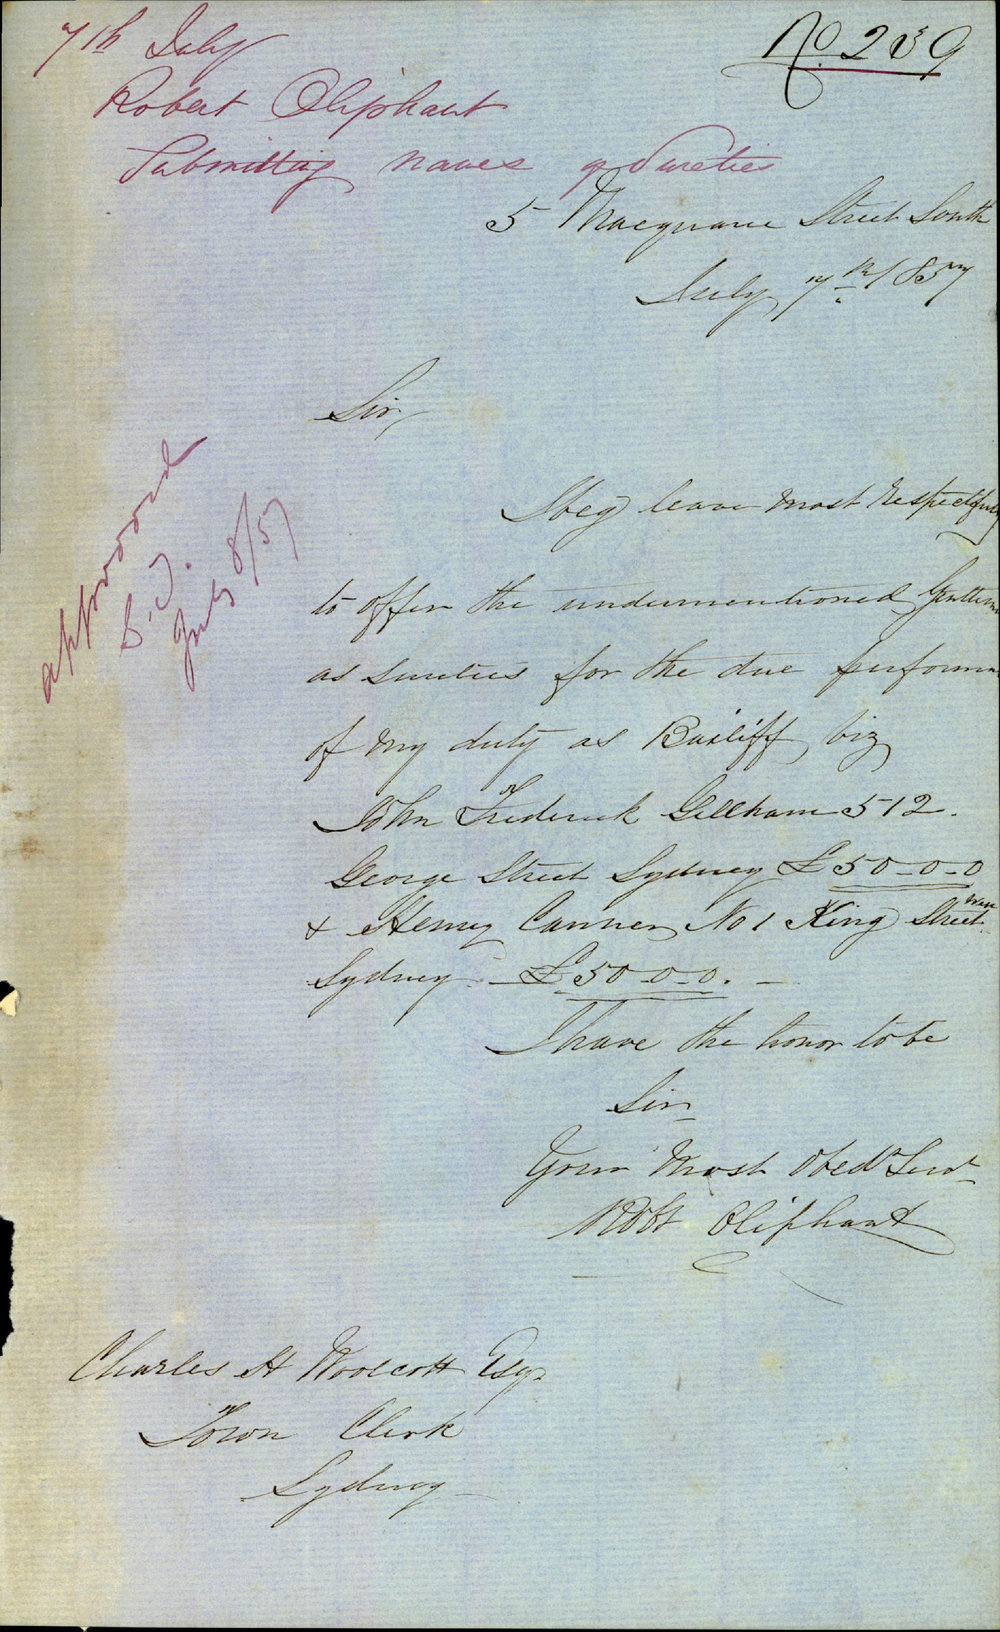 7th July
No. 239
Robert Oliphant
Submitting names of Sureties
5 Macquarie Street South
July 7th 1857
Sir,
approved
July 8/57
I beg leave most respectfully
to offer the undermentioned Gentlemen
as sureties for the due performan
of my duty as Bailiff viz
John Frederick Gillham 512.
George Street Sydney £50-0-0
& Henry Canner No 1 King Street
Sydney - £50-0-0. -
I have the honor to be
Sir
Your Most Obedt Servt
Robt Oliphant
Charles H Woolcott Esqr
Town Clerk
Sydney